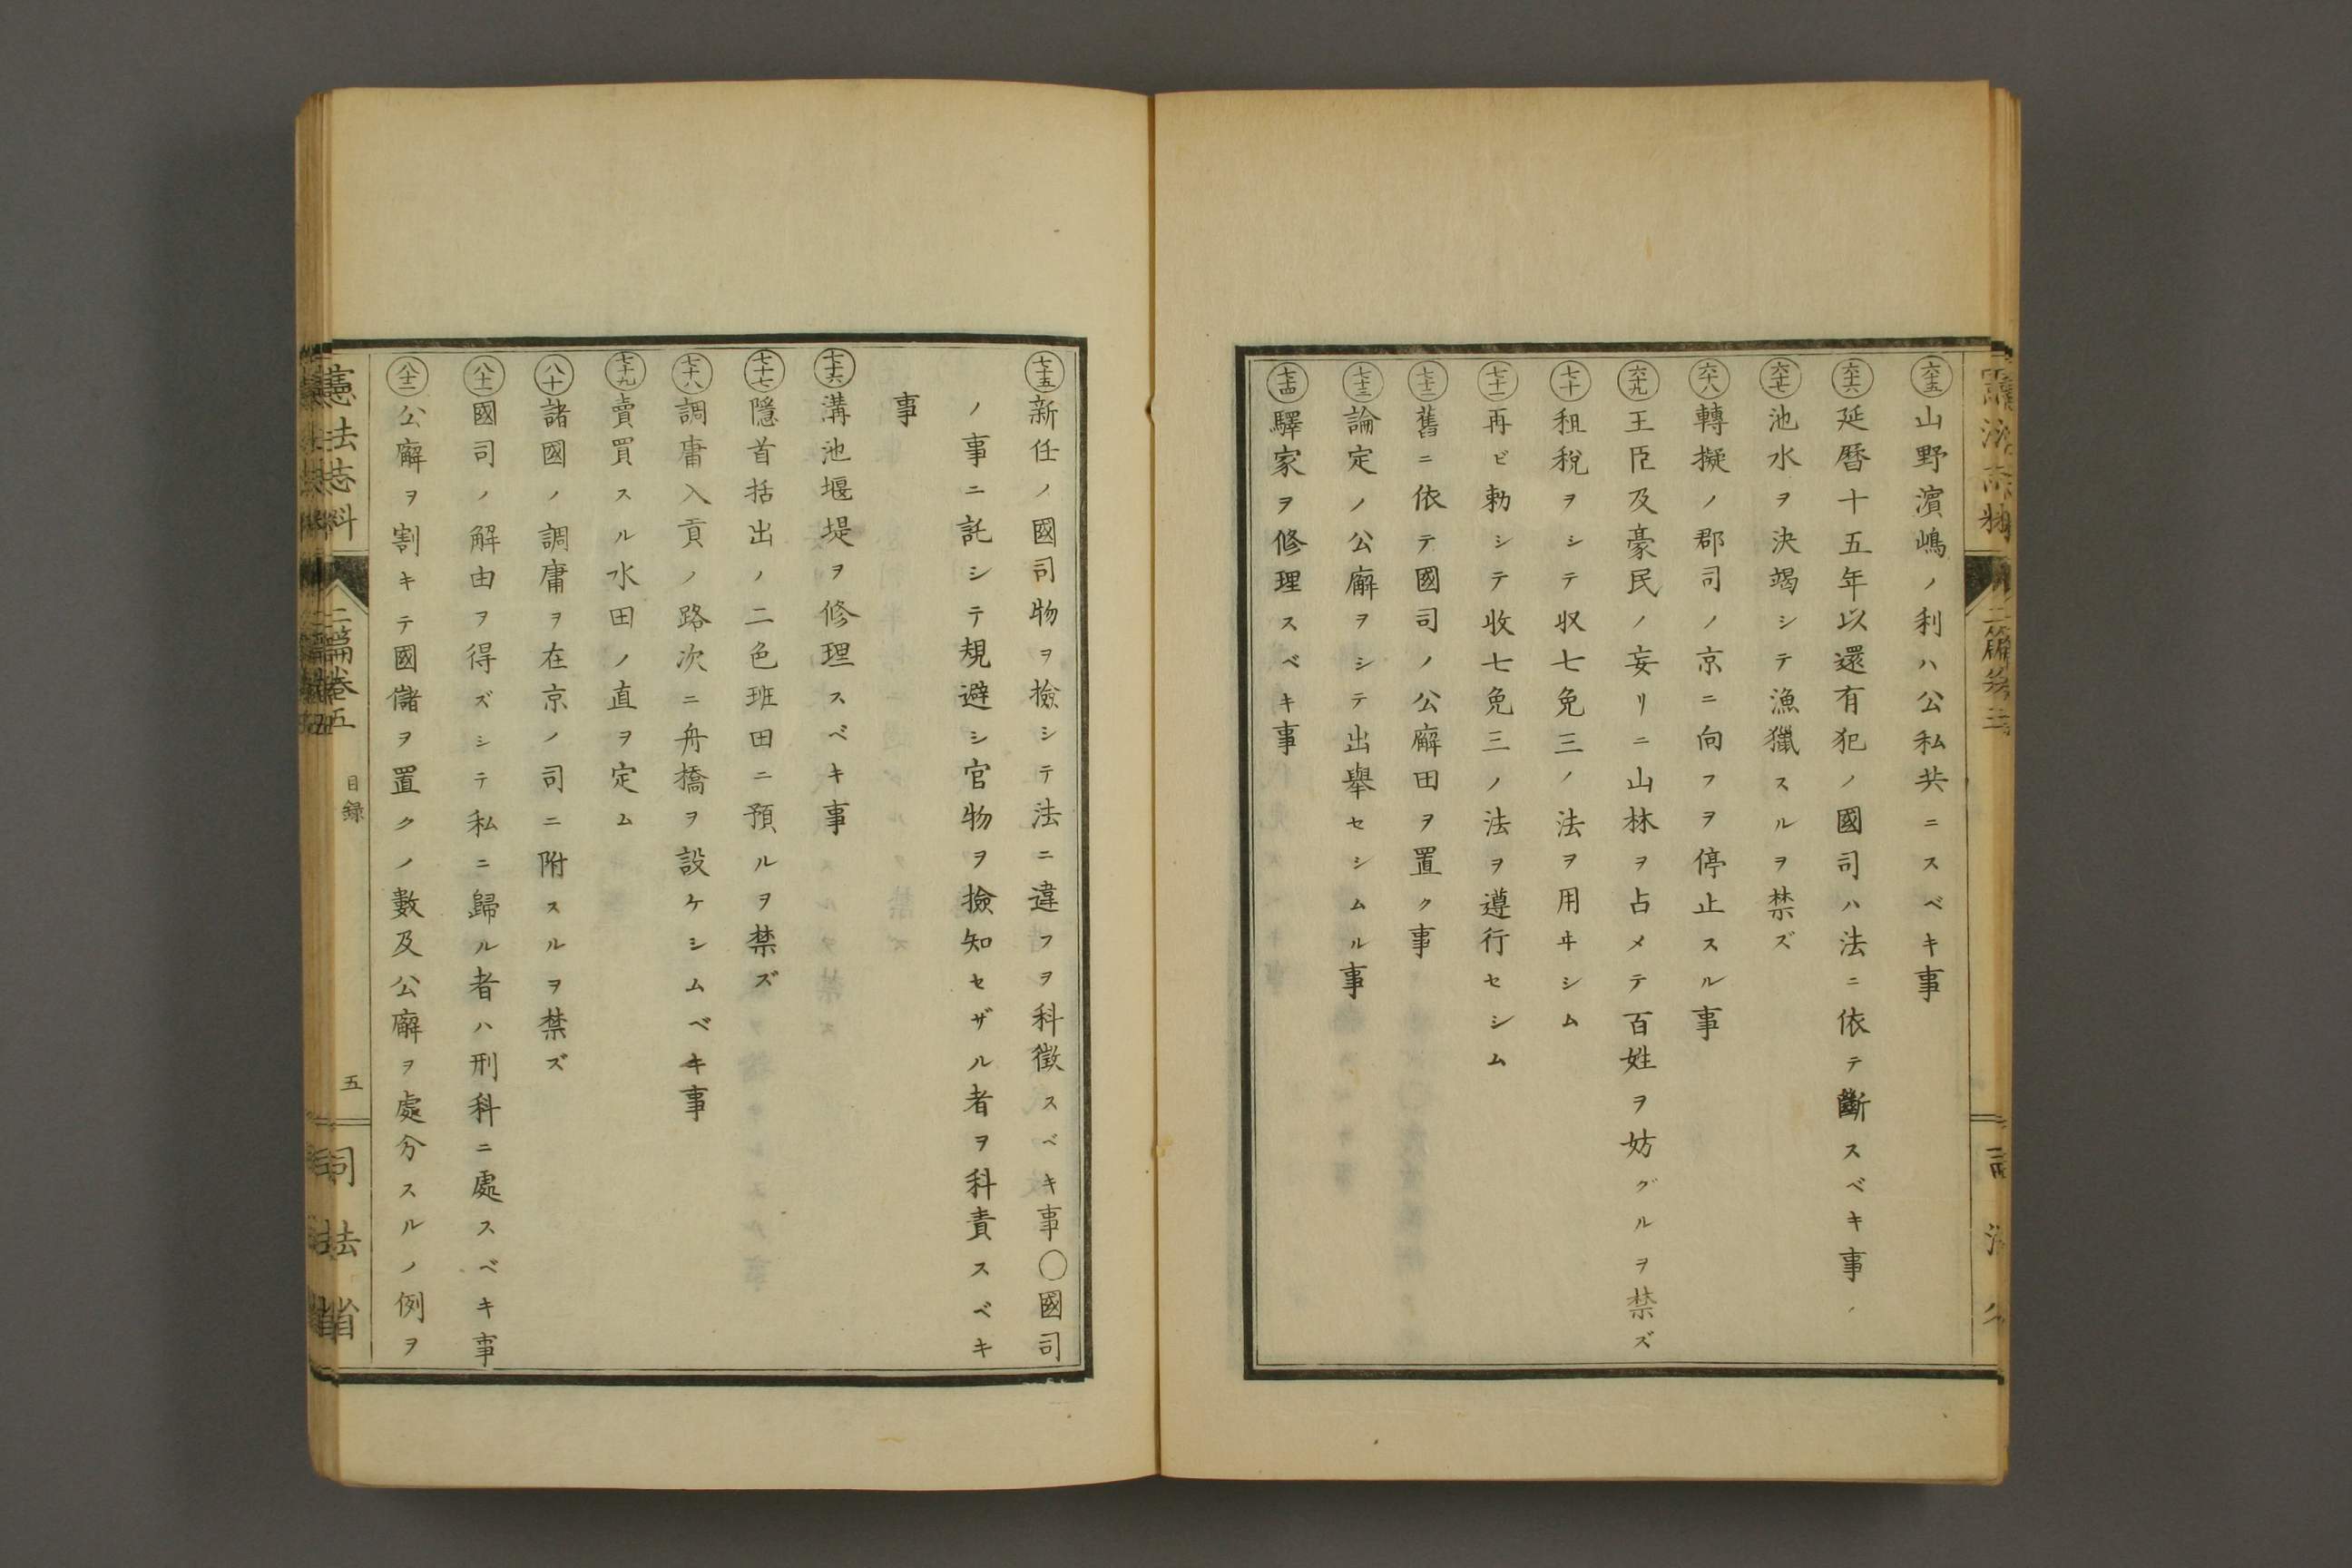 六十五 山野濵嶋ノ利ハ公私共ニスベキ事
六十六 延曆十五年以還有犯ノ國司ハ法ニ依テ斷スベキ事
六十七 池水ヲ決竭シテ漁獵スルヲ禁ズ
六十八 轉擬ノ郡司ノ京ニ向フヲ停止スル事
六十九 王臣及豪民ノ妄リニ山林ヲ占メテ百姓ヲ妨グルヲ禁ズ
七十 租稅ヲシテ収七免三ノ法ヲ用ヰシム
七十一 再ビ勅シテ收七免三ノ法ヲ遵行セシム
七十二 舊ニ依テ國司ノ公廨田ヲ置ク事
七十三 論定ノ公廨ヲシテ出舉セシムル事
七十四 驛家ヲ修理スベキ事
七十五 新任ノ國司物ヲ撿シテ法ニ違フヲ科徵スベキ事〇國司
ノ事ニ託シテ規避シ官物ヲ撿知セザル者ヲ科責スベキ
事
七十六 溝池堰堤ヲ修理スベキ事
七十七 隱首括出ノ二色班田ニ預ルヲ禁ズ
七十八 調庸入貢ノ路次ニ舟橋ヲ設ケシムベキ事
七十九 賣買スル水田ノ直ヲ定ム
八十 諸國ノ調庸ヲ在京ノ司ニ附スルヲ禁ズ
八十一 國司ノ解由ヲ得ズシテ私ニ歸ル者ハ刑科ニ處スベキ事
八十二 公廨ヲ割キテ國儲ヲ置クノ數及公廨ヲ處分スルノ例ヲ
憲法志料
二篇卷五
目録
五
司法省